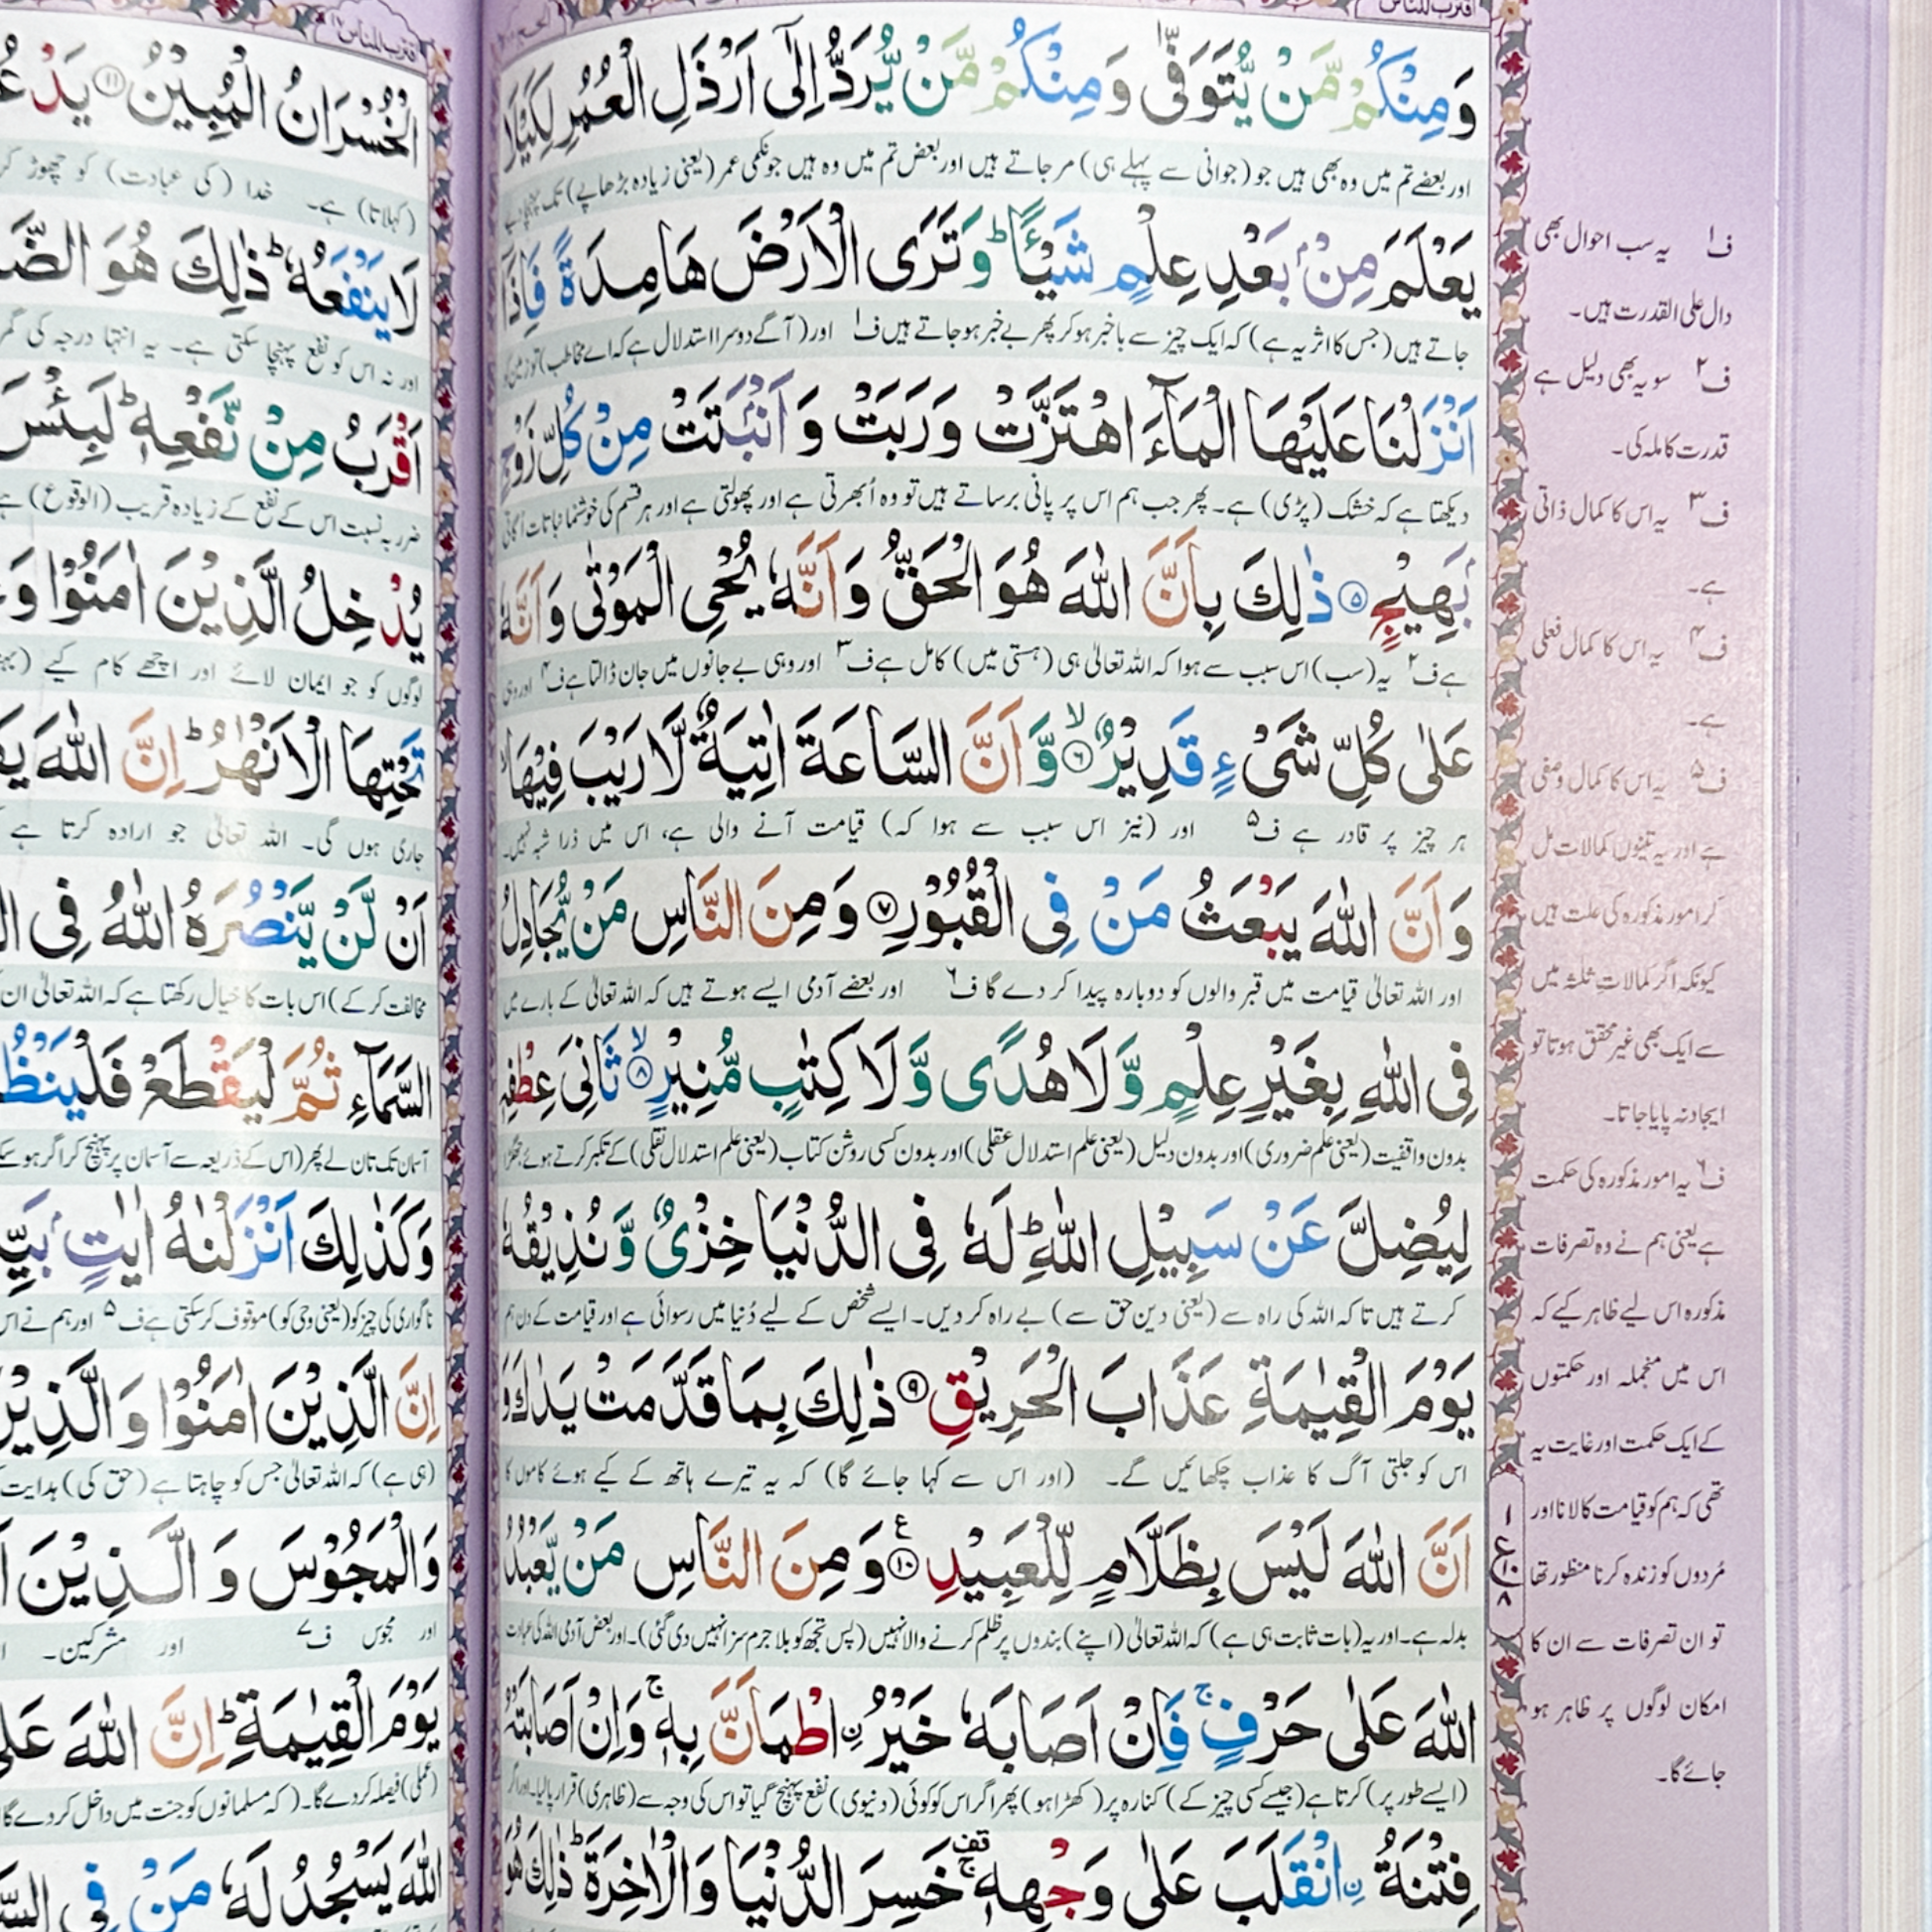 اقترب للناس
وَمِنْكُمْ مَّنْ يُّتَوَفّٰى وَمِنْكُمْ مَّنْ يُّرَدُّ اِلٰٓى اَرْذَلِ الْعُمُرِ لِكَيْلَا
اور بعضے تم میں وہ بھی ہیں جو (جوانی سے پہلے ہی) مر جاتے ہیں اور بعض تم میں وہ ہیں جو نکمی عمر (یعنی زیادہ بڑھاپے) تک
يَعْلَمَ مِنْۢ بَعْدِ عِلْمٍ شَيْـًٔا ؕ وَتَرَى الْاَرْضَ هَامِدَةً فَاِذَآ
جاتے ہیں (جس کا اثر یہ ہے) کہ ایک چیز سے باخبر ہو کر پھر بے خبر ہو جاتے ہیں ف۱ اور (آگے دوسرا استدلال ہے کہ اے مخاطب) تو زمین کو
اَنْزَلْنَا عَلَيْهَا الْمَآءَ اهْتَزَّتْ وَرَبَتْ وَاَنْۢبَتَتْ مِنْ كُلِّ زَوْجٍۢ
دیکھتا ہے کہ خشک (پڑی) ہے۔ پھر جب ہم اس پر پانی برساتے ہیں تو وہ اُبھرتی ہے اور پھولتی ہے اور ہر قسم کی خوشنما نباتات اُگاتی
بَهِيْجٍ ۵ ذٰلِكَ بِاَنَّ اللّٰهَ هُوَ الْحَقُّ وَاَنَّهٗ يُحْىِ الْمَوْتٰى وَاَنَّهٗ
ہے ف۲ یہ (سب) اس سبب سے ہوا کہ اللہ تعالیٰ ہی (ہستی میں) کامل ہے ف۳ اور وہی بے جانوں میں جان ڈالتا ہے ف۴ اور وہی
عَلٰى كُلِّ شَىْءٍ قَدِيْرٌ ۙ۶ وَّاَنَّ السَّاعَةَ اٰتِيَةٌ لَّا رَيْبَ فِيْهَا ۙ
ہر چیز پر قادر ہے ف۵ اور (نیز اس سبب سے ہوا کہ) قیامت آنے والی ہے، اس میں ذرا شبہ نہیں۔
وَاَنَّ اللّٰهَ يَبْعَثُ مَنْ فِى الْقُبُوْرِ ۷ وَمِنَ النَّاسِ مَنْ يُّجَادِلُ
اور اللہ تعالیٰ قیامت میں قبر والوں کو دوبارہ پیدا کر دے گا ف۶ اور بعضے آدمی ایسے ہوتے ہیں کہ اللہ تعالیٰ کے بارے میں
فِى اللّٰهِ بِغَيْرِ عِلْمٍ وَّلَا هُدًى وَّلَا كِتٰبٍ مُّنِيْرٍ ۙ۸ ثَانِىَ عِطْفِهٖ
بدون واقفیت (یعنی علم ضروری) اور بدون دلیل (یعنی علم استدلال عقلی) اور بدون کسی روشن کتاب (یعنی علم استدلال نقلی) کے تکبر کرتے ہوئے جھگڑا
لِيُضِلَّ عَنْ سَبِيْلِ اللّٰهِ ؕ لَهٗ فِى الدُّنْيَا خِزْىٌ وَّنُذِيْقُهٗ
کرتے ہیں تا کہ اللہ کی راہ سے (یعنی دین حق سے) بے راہ کر دیں۔ ایسے شخص کے لیے دُنیا میں رسوائی ہے اور قیامت کے دن ہم
يَوْمَ الْقِيٰمَةِ عَذَابَ الْحَرِيْقِ ۹ ذٰلِكَ بِمَا قَدَّمَتْ يَدٰكَ وَ
اس کو جلتی آگ کا عذاب چکھائیں گے۔ (اور اس سے کہا جائے گا) کہ یہ تیرے ہاتھ کے کیے ہوئے کاموں کا
اَنَّ اللّٰهَ لَيْسَ بِظَلَّامٍ لِّلْعَبِيْدِ ۱۰ وَمِنَ النَّاسِ مَنْ يَّعْبُدُ
بدلہ ہے۔ اور یہ (بات ثابت ہی ہے) کہ اللہ تعالیٰ (اپنے) بندوں پر ظلم کرنے والا نہیں (پس تجھ کو بلا جرم سزا نہیں دی گئی)۔ اور بعض آدمی اللہ کی عبادت
اللّٰهَ عَلٰى حَرْفٍ ۚ فَاِنْ اَصَابَهٗ خَيْرُ ۨاطْمَاَنَّ بِهٖ ۚ وَاِنْ اَصَابَتْهُ
(ایسے طور پر) کرتا ہے (جیسے کسی چیز کے) کنارہ پر (کھڑا ہو) پھر اگر اس کو کوئی (دنیوی) نفع پہنچ گیا تو اس کی وجہ سے (ظاہری) قرار پا لیا۔ اور اگر
فِتْنَةُ ۨانْقَلَبَ عَلٰى وَجْهِهٖ ۚ قف خَسِرَ الدُّنْيَا وَالْاٰخِرَةَ ؕ ذٰلِكَ هُوَ
ف۱ یہ سب احوال بھی
دال علی القدرت ہیں۔
ف۲ سو یہ بھی دلیل ہے
قدرت کاملہ کی۔
ف۳ یہ اس کا کمال ذاتی
ہے۔
ف۴ یہ اس کا کمال فعلی
ہے۔
ف۵ یہ اس کا کمال وصفی
ہے اور یہ تینوں کمالات مل
کر امور مذکورہ کی علت ہیں
کیونکہ اگر کمالاتِ ثلثہ میں
سے ایک بھی غیر محقق ہوتا تو
ایجاد نہ پایا جاتا۔
ف۶ یہ امور مذکورہ کی حکمت
ہے یعنی ہم نے وہ تصرفات
مذکورہ اس لیے ظاہر کیے کہ
اس میں منجملہ اور حکمتوں
کے ایک حکمت اور غایت یہ
تھی کہ ہم کو قیامت کا لانا اور
مُردوں کو زندہ کرنا منظور تھا
تو ان تصرفات سے ان کا
امکان لوگوں پر ظاہر ہو
جائے گا۔
۱
ع
۱۰
۸
اقترب للناس ۱۷
الْخُسْرَانُ الْمُبِيْنُ ۱۱
(کہلاتا) ہے۔ خدا (کی عبادت) کو چھوڑ
لَا يَنْفَعُهٗ ؕ ذٰلِكَ هُوَ
اور نہ اس کو نفع پہنچا سکتی ہے۔ یہ انتہا درجہ کی
اَقْرَبُ مِنْ نَّفْعِهٖ ؕ لَبِئْسَ
ضرر بہ نسبت اس کے نفع کے زیادہ قریب (الوقوع) ہے
يُدْخِلُ الَّذِيْنَ اٰمَنُوْا وَ
لوگوں کو جو ایمان لائے اور اچھے کام کیے
تَحْتِهَا الْاَنْهٰرُ ؕ اِنَّ اللّٰهَ
جاری ہوں گی۔ اللہ تعالیٰ جو ارادہ کرتا ہے
اَنْ لَّنْ يَّنْصُرَهُ اللّٰهُ فِى
مخالفت کر کے) اس بات کا خیال رکھتا ہے کہ اللہ تعالیٰ ان
السَّمَآءِ ثُمَّ لْيَقْطَعْ
آسمان تک تان لے پھر (اس کے ذریعہ سے آسمان پر پہنچ کر اگر ہو سکے
وَكَذٰلِكَ اَنْزَلْنٰهُ اٰيٰتٍۢ
ناگواری کی چیز کو (یعنی وحی کو) موقوف کر سکتی ہے ف۵ اور ہم نے
اِنَّ الَّذِيْنَ اٰمَنُوْا وَالَّذِيْنَ
(ہی ہے) کہ اللہ تعالیٰ جس کو چاہتا ہے (حق کی) ہدایت
وَالْمَجُوْسَ وَالَّذِيْنَ
اور مجوس ف۷ اور مشرکین۔
يَوْمَ الْقِيٰمَةِ ؕ اِنَّ اللّٰهَ
(عملی) فیصلہ کر دے گا۔ (کہ مسلمانوں کو جنت میں داخل کر دے گا
اللّٰهَ يَسْجُدُ لَهٗ مَنْ فِى